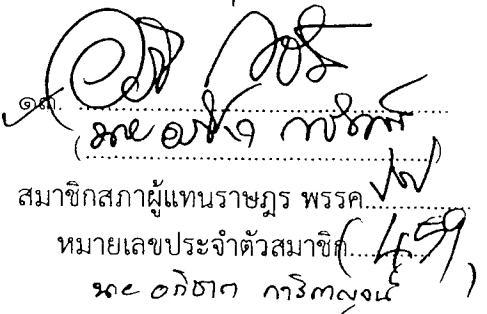 ๑๓.
(นายอภิชาต การิกาญจน์)
สมาชิกสภาผู้แทนราษฎร พรรค ปชป
หมายเลขประจำตัวสมาชิก (459)
นาย อภิชาต การิกาญจน์